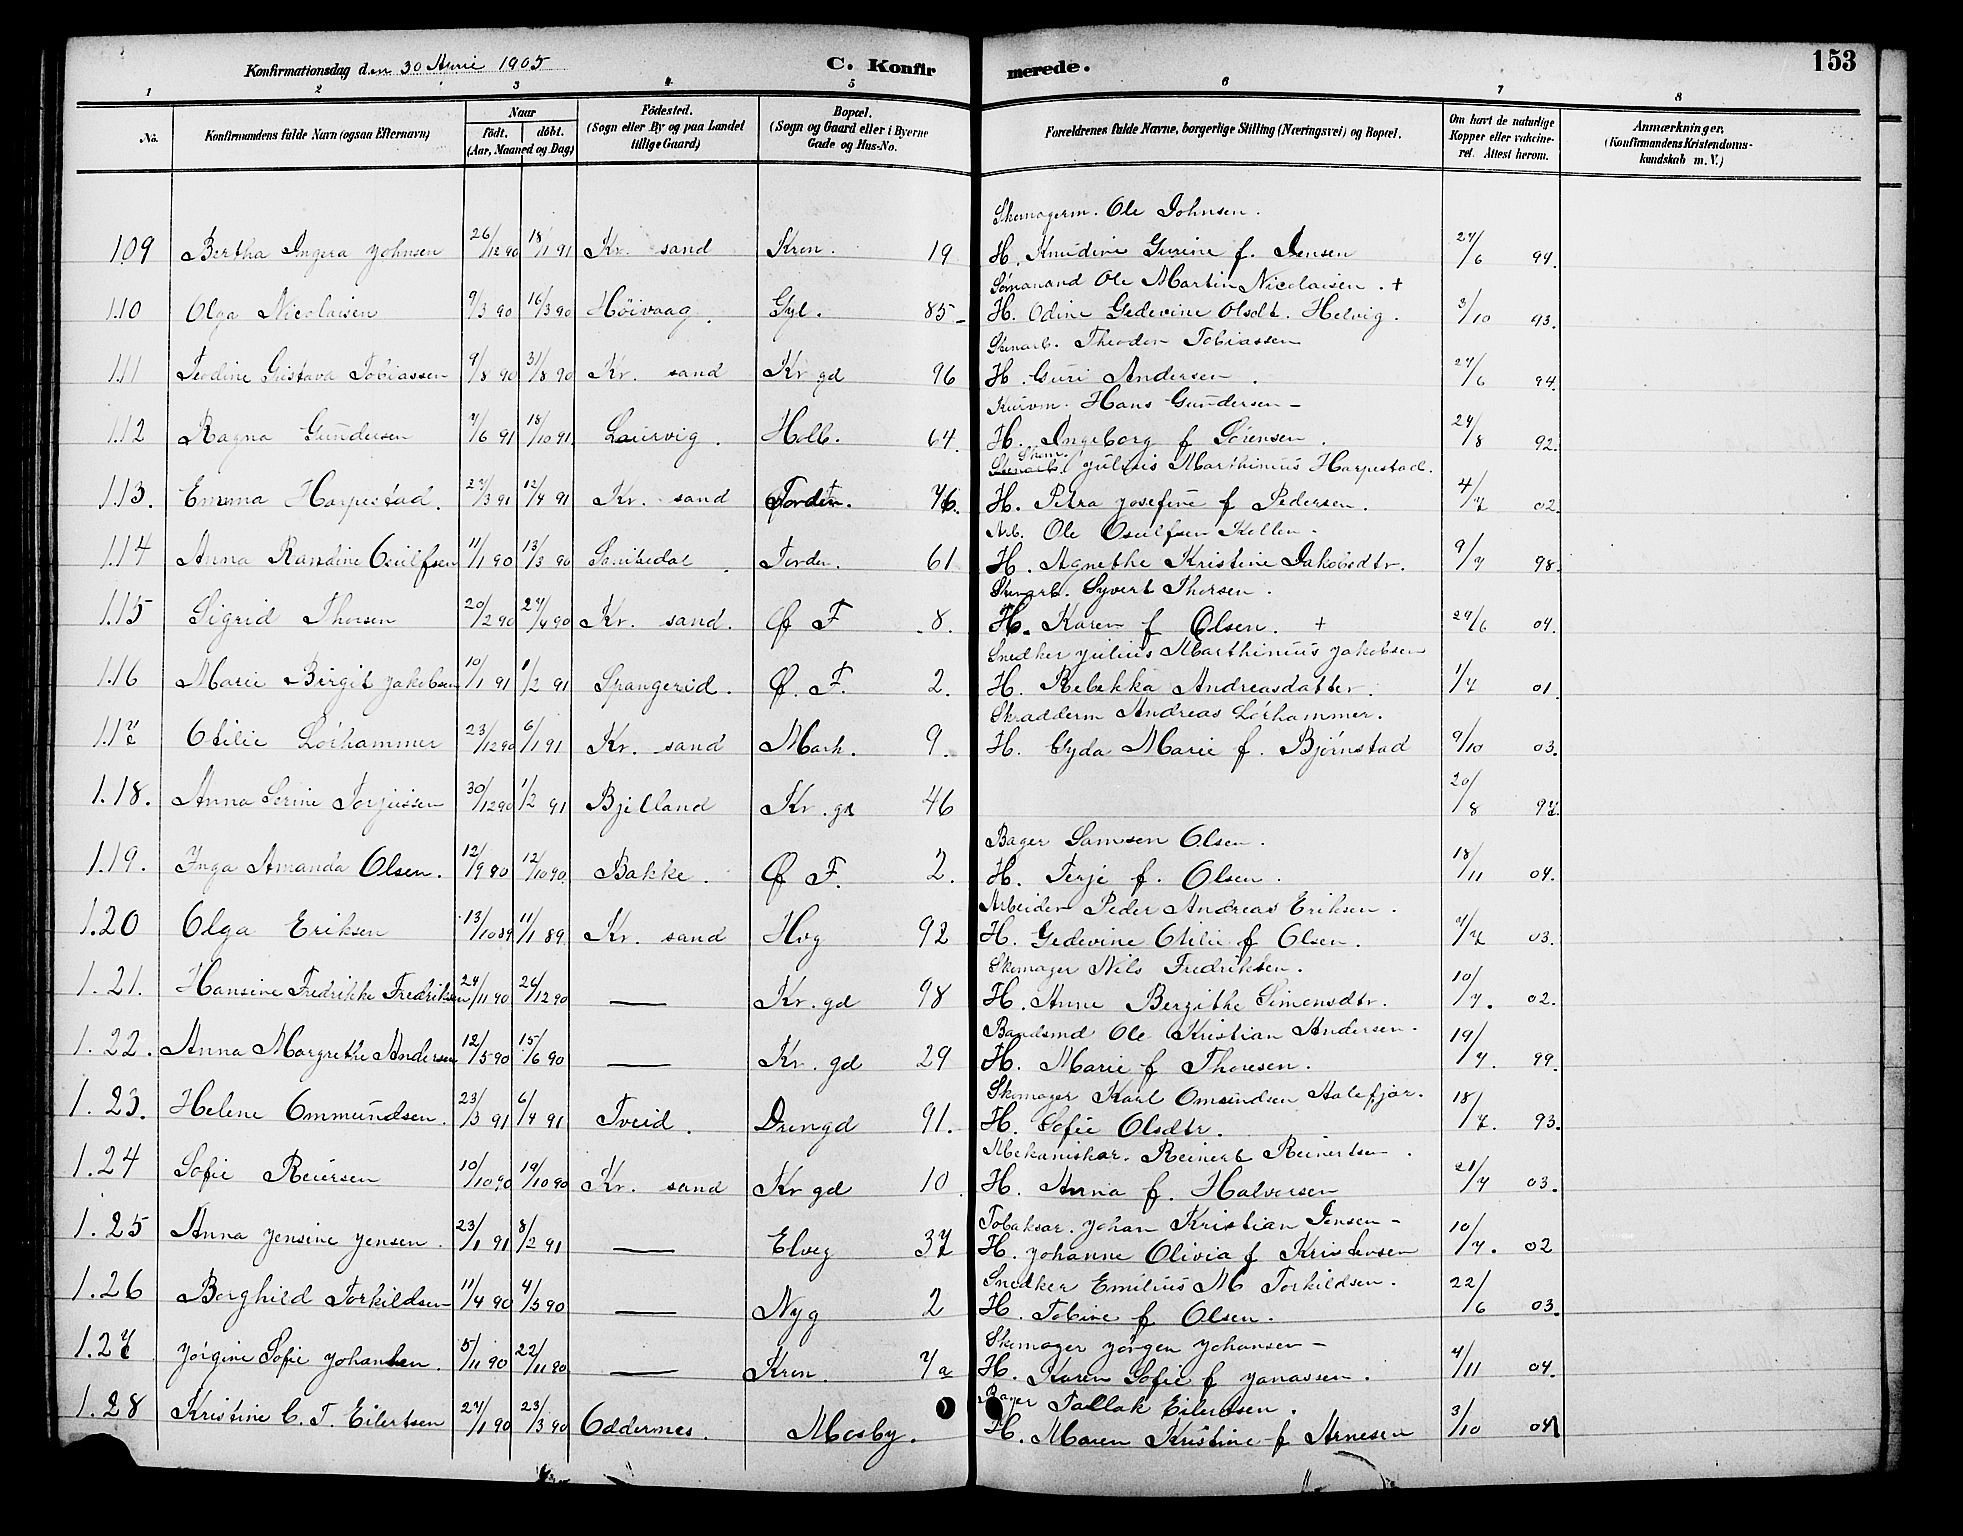 153
Konfirmationsdag den 30 April 1905 C. Konfirmerede.
1 2 3 4 5 6 7 8
No. Konfirmandens fulde Navn (ogsaa Efternavn) Naar födt. döbt. (Aar, Maaned og Dag) Födested. (Sogn eller By og paa Landet tillige Gaard) Bopæl. (Sogn og Gaard eller i Byerne Gade og Hus-No. Forældrenes fulde Navne, borgerlige Stilling (Næringsvei) og Bopæl. Om havt de naturlige Kopper eller vakcineret. Attest herom. Anmærkninger. (Konfirmandens Kristendomskundskab m. V.)
Skomagerm. Ole Johnsen.
109 Bertha Ingera Johnsen 26/12 90 18/1 91 Kr. sand Kron. 19 H. Knudine Gurine f. Jensen 27/6 94.
Sømand Ole Martin Nicolaisen. +
110 Olga Nicolaisen 9/3 90 16/3 90 Høivaag. Gyl. 85 H. Odine Gedevine Olsdt. Helvig. 3/10 93.
Theodor Tobiassen
111 Teodine Gustava Tobiassen 9/8 90 31/8 90 Kr. sand Kr gd 96 H. Guri Andersen. 27/6 94.
Kurvm. Hans Gundersen
112 Ragna Gundersen 7/6 91 18/10 91 Laurvig. Holb. 64. H. Ingeborg f Sørensen. 29/8 92.
Julius Marthinius Harpestad.
113. Emma Harpestad. 27/3 91 12/4 91 Kr. sand Torden. 76. H. Petra Josefine f Pedersen. 4/7 02.
Arb. Ole Osulfsen Kollen
114 Anna Randine Osulfsen 11/1 90 13/3 90 Torden. 61 H. Agnethe Kristine Jakobsdtr. 9/7 98.
Syvert Thorsen.
115 Sigrid Thorsen 20/2 90 27/4 90 Kr. sand. Ø F 8. H. Karen f Olsen. + 29/6 04.
Snedker Julius Marthinius Jakobsen
116 Marie Birgit Jakobsen 10/1 91 1/2 91 Spangereid. Ø. F. 2. H. Rebekka Andreasdatter. 1/7 01.
Skradderm Andreas Lörhammer.
117 Otilie Lörhammer 23/12 90 6/1 91 Kr. sand Mark. 9. H. Gyda Marie f. Bjørnstad 9/10 03.
118. Anna Serine Torjussen 30/12 90 1/2 91 Bjelland Kr. gd 46 20/8 97.
Bager Samsen Olsen.
119. Inga Amanda Olsen. 12/9 90 12/10 90. Bakke. Ø F. 2. H. Terje f. Olsen. 18/11 04.
Arbeider Peder Andreas Eriksen.
120 Olga Eriksen 13/10 89 11/1 89 Kr. sand Hvg 92 H. Gedevine Otilie f Olsen. 7/7 03.
Skomager Nils Fredriksen.
121. Hansine Fredrikke Fredriksen 24/11 90 26/12 90 — Kr. gd 98 H. Anne Bergithe Simonsdtr. 10/7. 02.
Baadsmd Ole Kristian Andersen.
122. Anna Margrethe Andersen 12/5 90 15/6 90 — Kr. gd 29 H. Marie f Thorsen. 19/7. 99.
Skomager Karl Omundsen
123. Helene Ommundsen. 23/3 91 6/4 91 Tveid. Drengd 91. H. Sofie Olsdtr. 18/7. 93.
Mekaniskar. Reinert Reinertsen.
124 Sofie 10/10 90 19/10 90 Kr. sand Kr gd 10. H. Anna f. Halvorsen 21/7 03.
Tobaksar. Johan Kristian Jensen
125 Anna Jensine Jensen. 23/1 91 8/2 91 — Elveg 37 H. Johanne Olivia f Kristensen 10/7. 02
Snedker Emilius M Torkildsen.
126 Borghild Torkildsen 11/4 90 4/5 90 — Nyg 2 H. Tobine f Olsen. 22/6 03.
Skomager Jørgen Johansen
127 Jörgine Sofie Johansen. 5/11 90 22/11 90 — Kron. 7a H. Karen Sofie f Jonassen. 4/11 04.
Tallak Eilertsen.
128 Kristine C. T. Eilertsen 27/1 90 23/3 90 Oddernes. Mosby. H. Maren Kristine f Arnesen 3/10 04